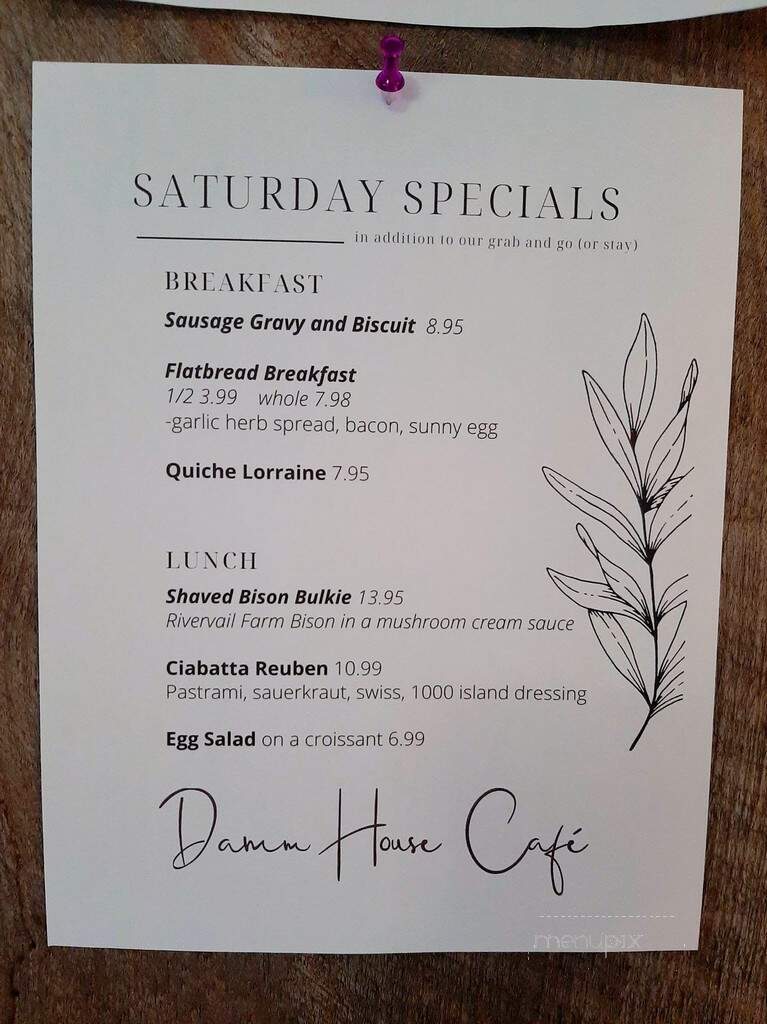 SATURDAY SPECIALS
in addition to our grab and go (or stay)
BREAKFAST
Sausage Gravy and Biscuit 8.95
Flatbread Breakfast
1/2 3.99 whole 7.98
-garlic herb spread, bacon, sunny egg
Quiche Lorraine 7.95
LUNCH
Shaved Bison Bulkie 13.95
Rivervail Farm Bison in a mushroom cream sauce
Ciabatta Reuben 10.99
Pastrami, sauerkraut, swiss, 1000 island dressing
Egg Salad on a croissant 6.99
Damm House Café
menupix